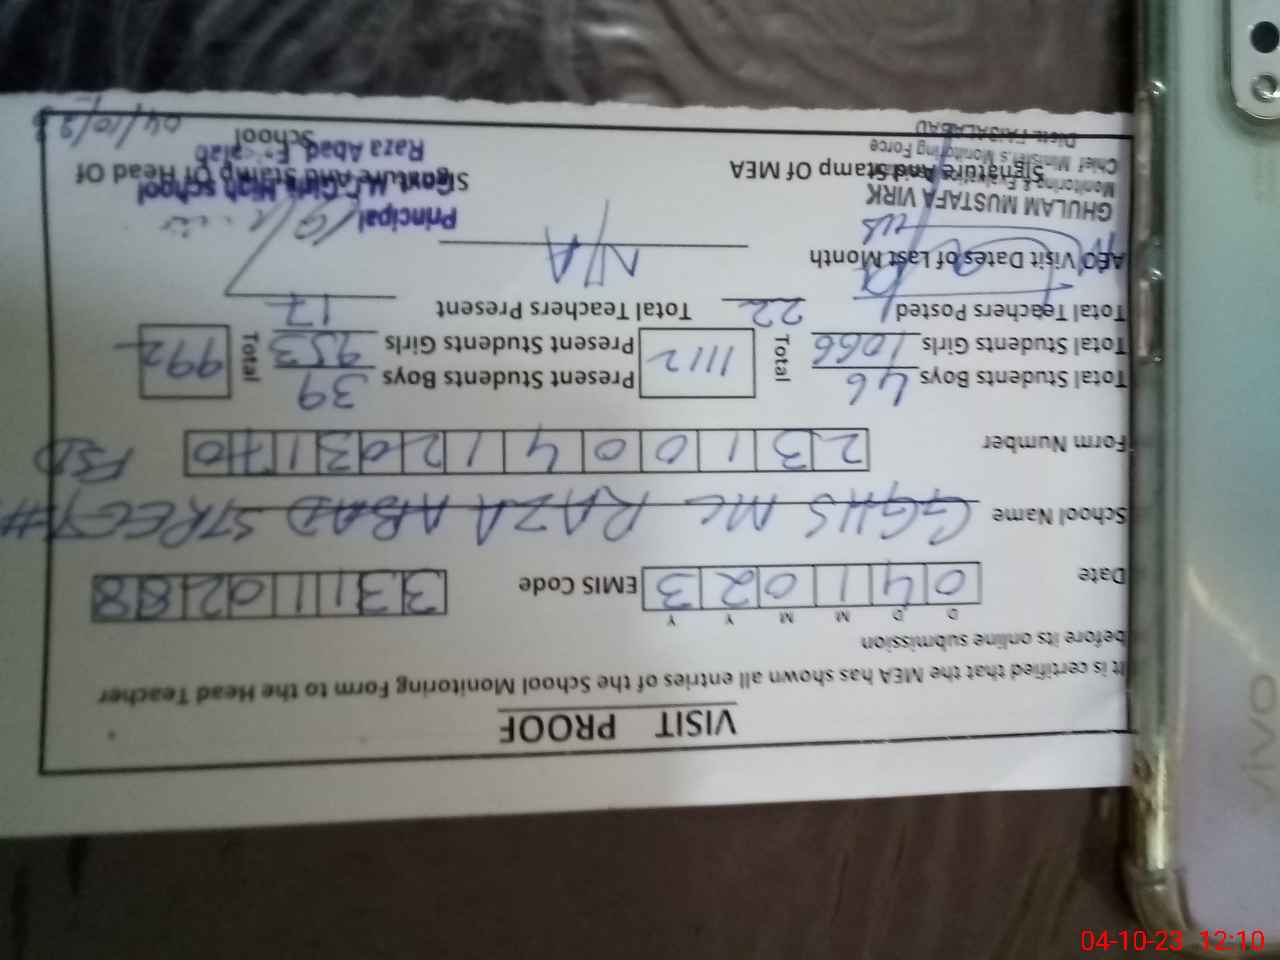 VISIT PROOF
It is certified that the MEA has shown all entries of the School Monitoring Form to the Head Teacher
before its online submission
D D M M Y Y
Date 0 4 1 0 2 3 EMIS Code 3 3 1 1 0 2 8 8
School Name GGHS MC RAZA ABAD STREET #
FSD
Form Number 2 3 1 0 0 4 1 2 0 3 1 7 0
Total Students Boys 46 Total 1112 Present Students Boys 39 Total 992
Total Students Girls 1066 Present Students Girls 953
Total Teachers Posted 22 Total Teachers Present 17
AEO Visit Dates of Last Month N/A
GHULAM MUSTAFA VIRK
Monitoring & Evaluation
Chief Minister's Monitoring Force
Distt. FAISALABAD
Signature And Stamp Of MEA
Principal
Govt. M.C Girls High school
Raza Abad
Signature And Stamp Of Head Of
School
04/10/23
vivo
04-10-23 12:10